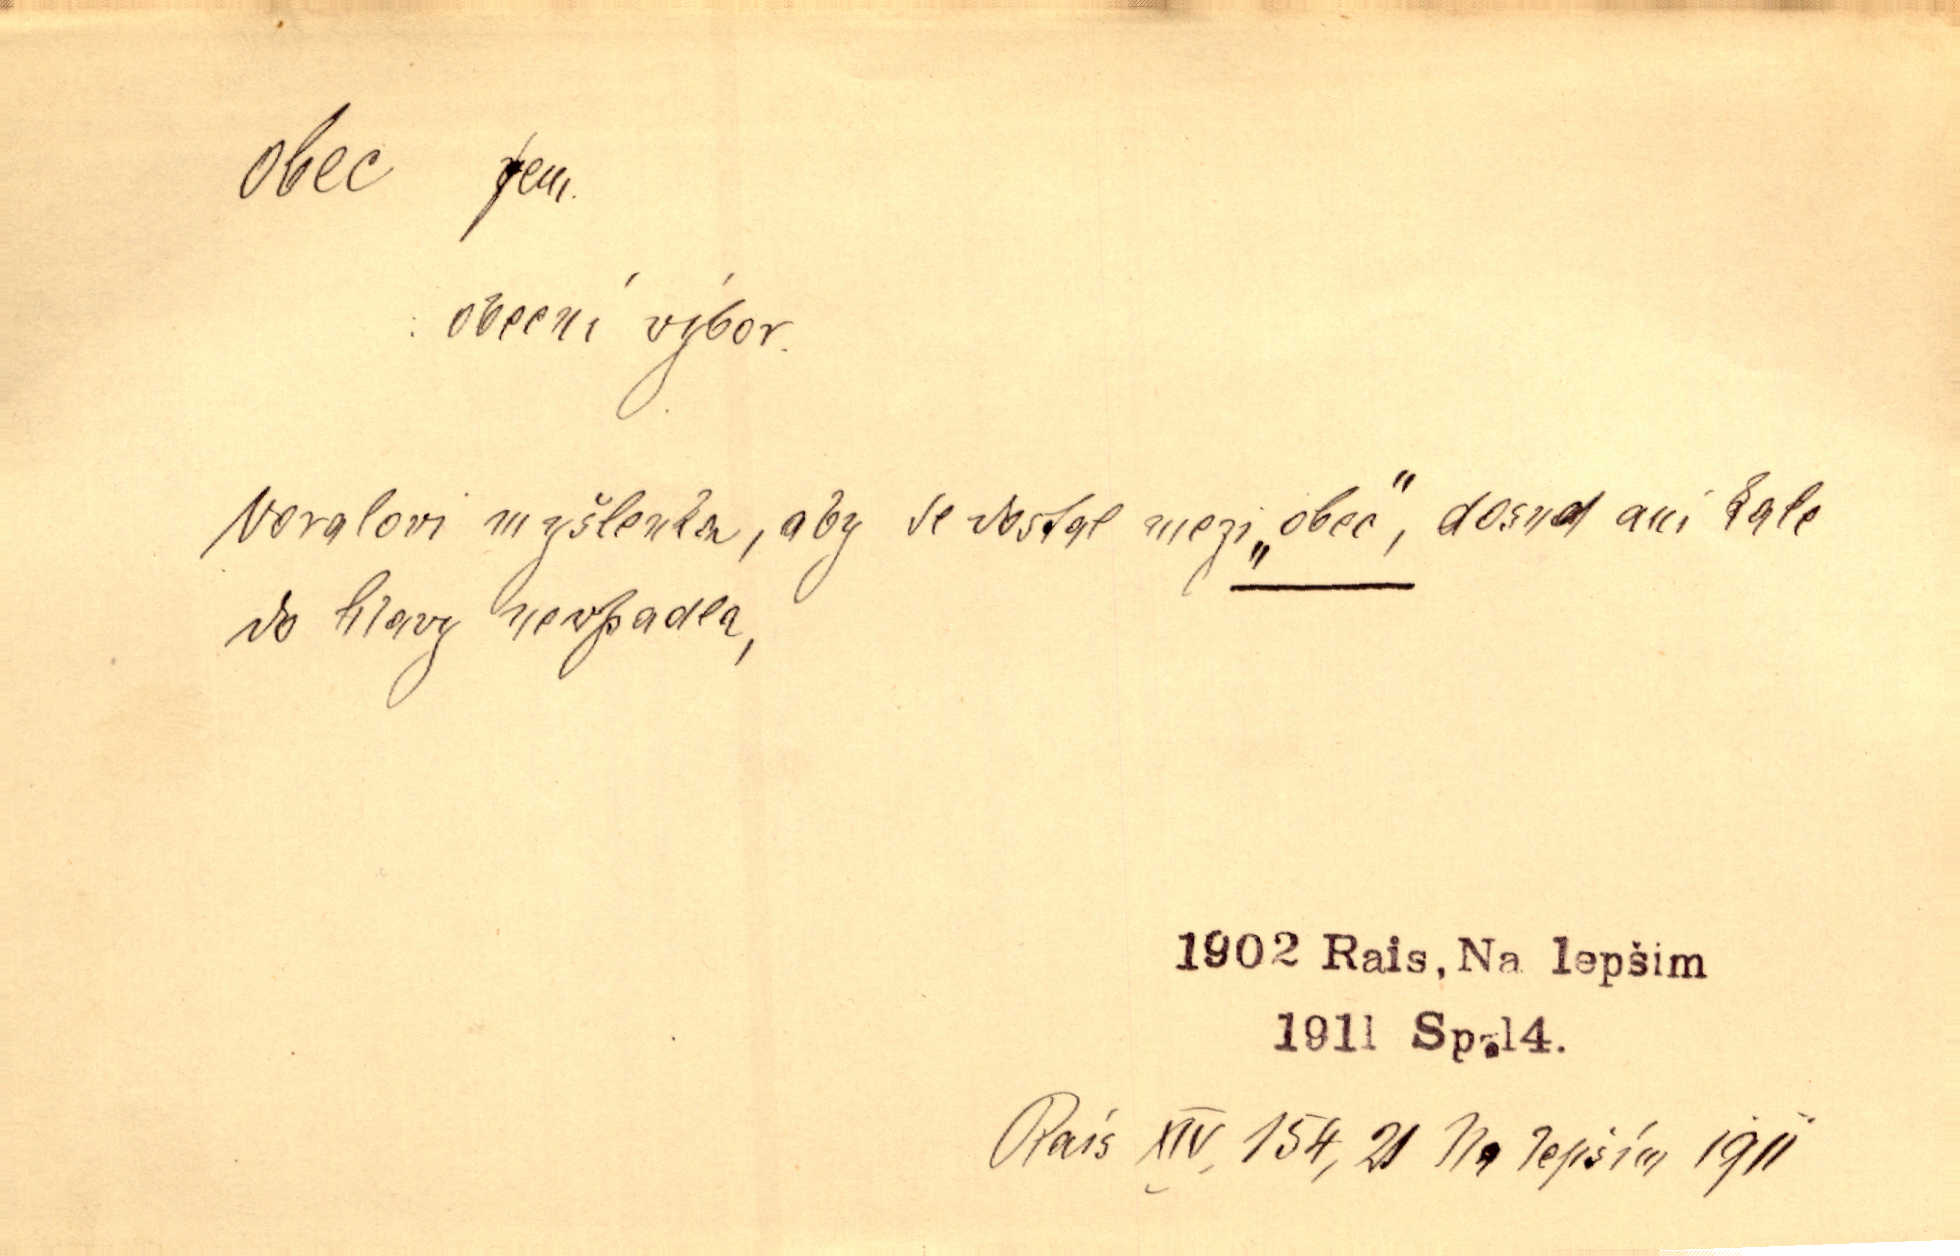 obec fem.
: obecní výbor.
Voralovi myšlenka, aby se dostal mezi „obec“, dosud ani
do hlavy nevpadla,
1902 Rais, Na lepším
1911 Sp. 14.
Rais XIV, 154, 21 Na lepším 1911